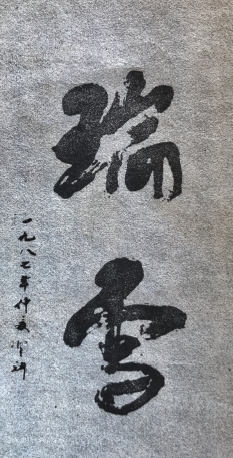 瑞雪
一九八七年仲夏